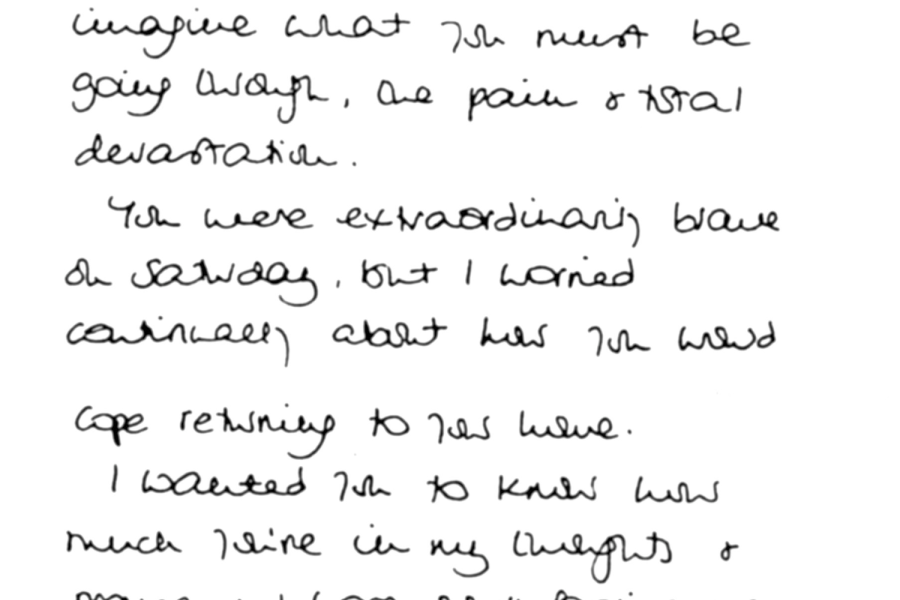 imagine what you must be
going through, the pain & total
devastation.
You were extraordinarily brave
on Saturday, but I worried
continually about how you would
cope returning to your home.
I wanted you to know how
much you're in my thoughts &